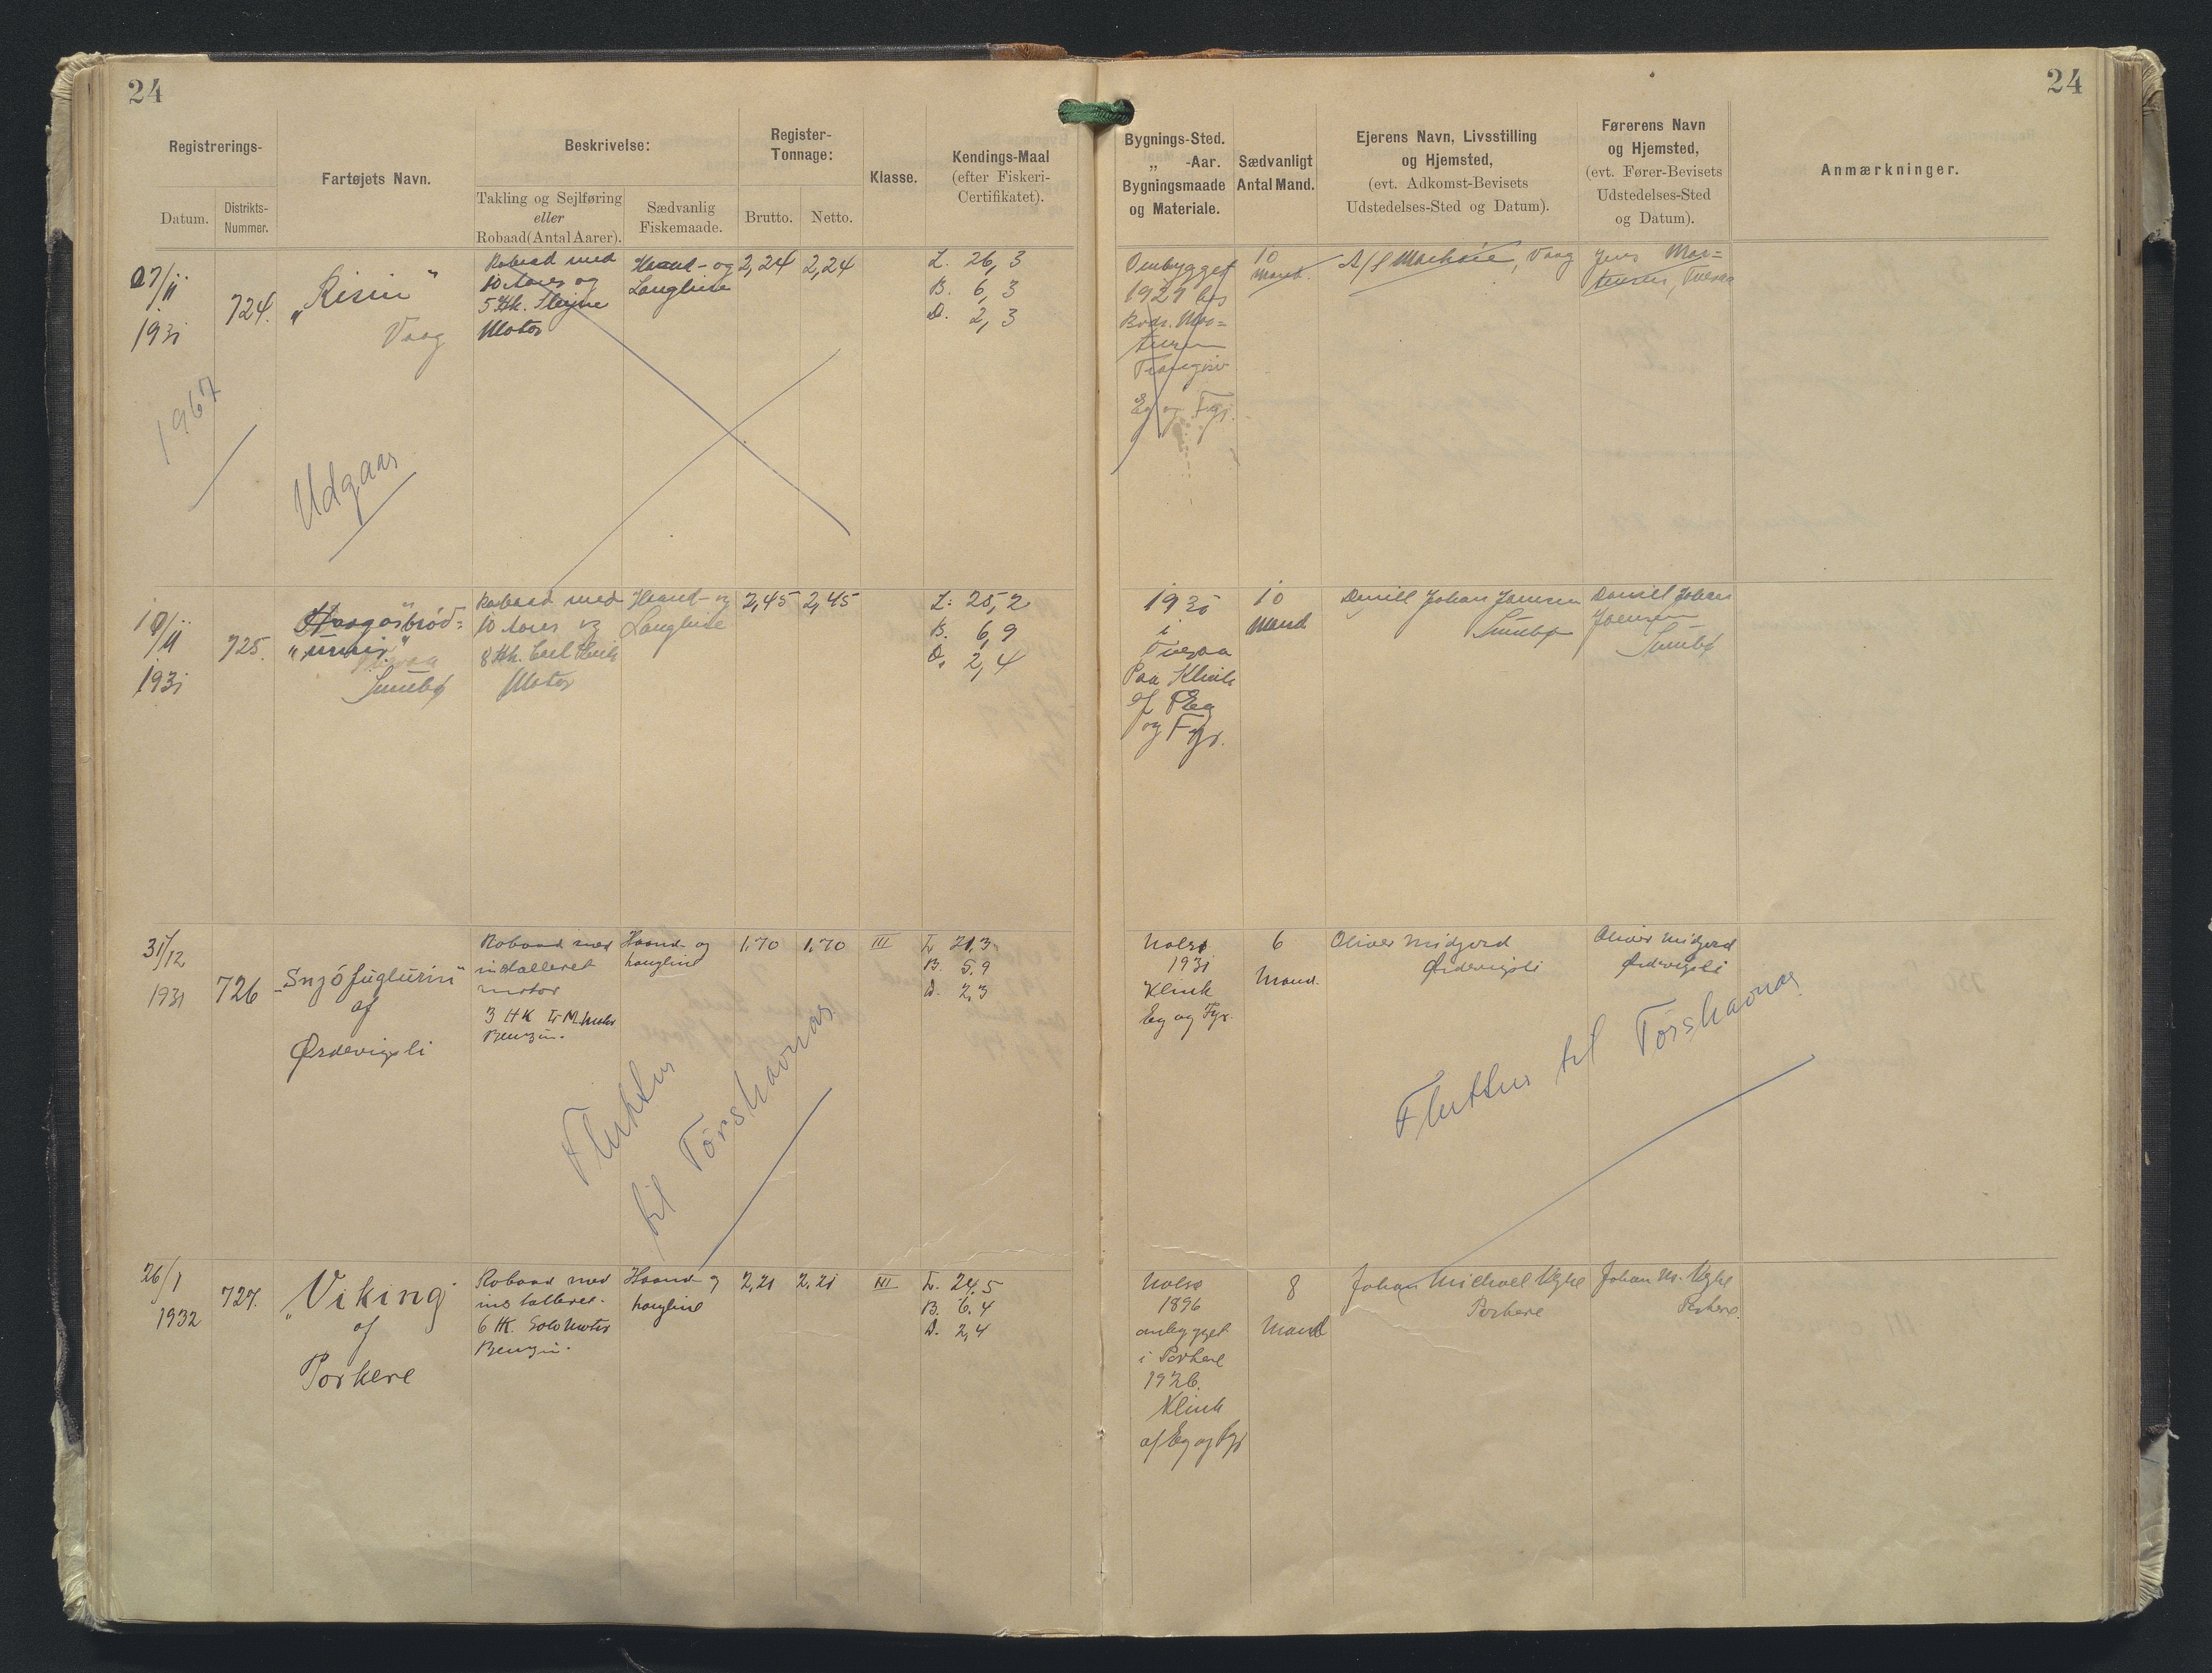 24
24
Registrerings-
Datum.
Distrikts-
Nummer.
Fartøjets Navn.
Beskrivelse:
Takling og Sejlføring
eller
Robaad (Antal Aarer).
Sædvanlig
Fiskemaade.
Register-
Tonnage:
Brutto.
Netto.
Klasse.
Kendings-Maal
(efter Fiskeri-
Certifikatet).
Bygnings-Sted.
„ -Aar.
Bygningsmaade
og Materiale.
Sædvanligt
Antal Mand.
Ejerens Navn, Livsstilling
og Hjemsted,
(evt. Adkomst-Bevisets
Udstedelses-Sted og Datum).
Førerens Navn
og Hjemsted,
(evt. Fører-Bevisets
Udstedelses-Sted
og Datum).
Anmærkninger.
27/11
1931
724.
„Risin"
Vaag
Robaad med
10 Aarer og
5 Hk.
Motor
Haand- og
Langline
2,24
2,24
L. 26,3
B. 6,3
D. 2,3
Ombygget
1929 hos
Brdr. Mor=
tensen
Trangisv
Eg og Fyr.
10
Mand.
A/S
, Vaag
Jens Mor=
tensen, Tveraa
1967
Udgaar
1931
725.
Sumbø
Robaad med
10 Aarer og
8 Hk.
Motor
Haand- og
Langline
2,45
2,45
L: 25,2
B. 6,9
D. 2,4
1930
i
Tveraa
Paa Klink
af Eg
og Fyr.
10
Mand
Daniell Johan Joensen
Sumbø
Daniell Johan
Joensen
Sumbø
31/12
1931
726
„Snjófuglurin"
af
Ørdevigsli
Robaad med
installeret
motor
3 HK
Benzin.
Haand- og
Langline
1,70
1,70
III
L. 21,3
B. 5,9
D. 2,3
Nolsø
1931
Klink
Eg og Fyr.
6
Mand.
Oliver Midjord
Ørdevigsli
Oliver Midjord
Ørdevigsli
Fluttur
til Tórshavnar
Fluttur til Tórshavnar
26/1
1932
727.
„Viking"
af
Porkere
Robaad med
installeret
6 HK. Solo Motor
Benzin.
Haand- og
Langline
2,21
2,21
III
L. 24,5
B. 6,4
D. 2,4
Nolsø
1896
ombygget
i Porkere
1926.
Klink
af Eg og Fyr
8
Mand
Johan Michael
Porkere
Johan M.
Porkere.